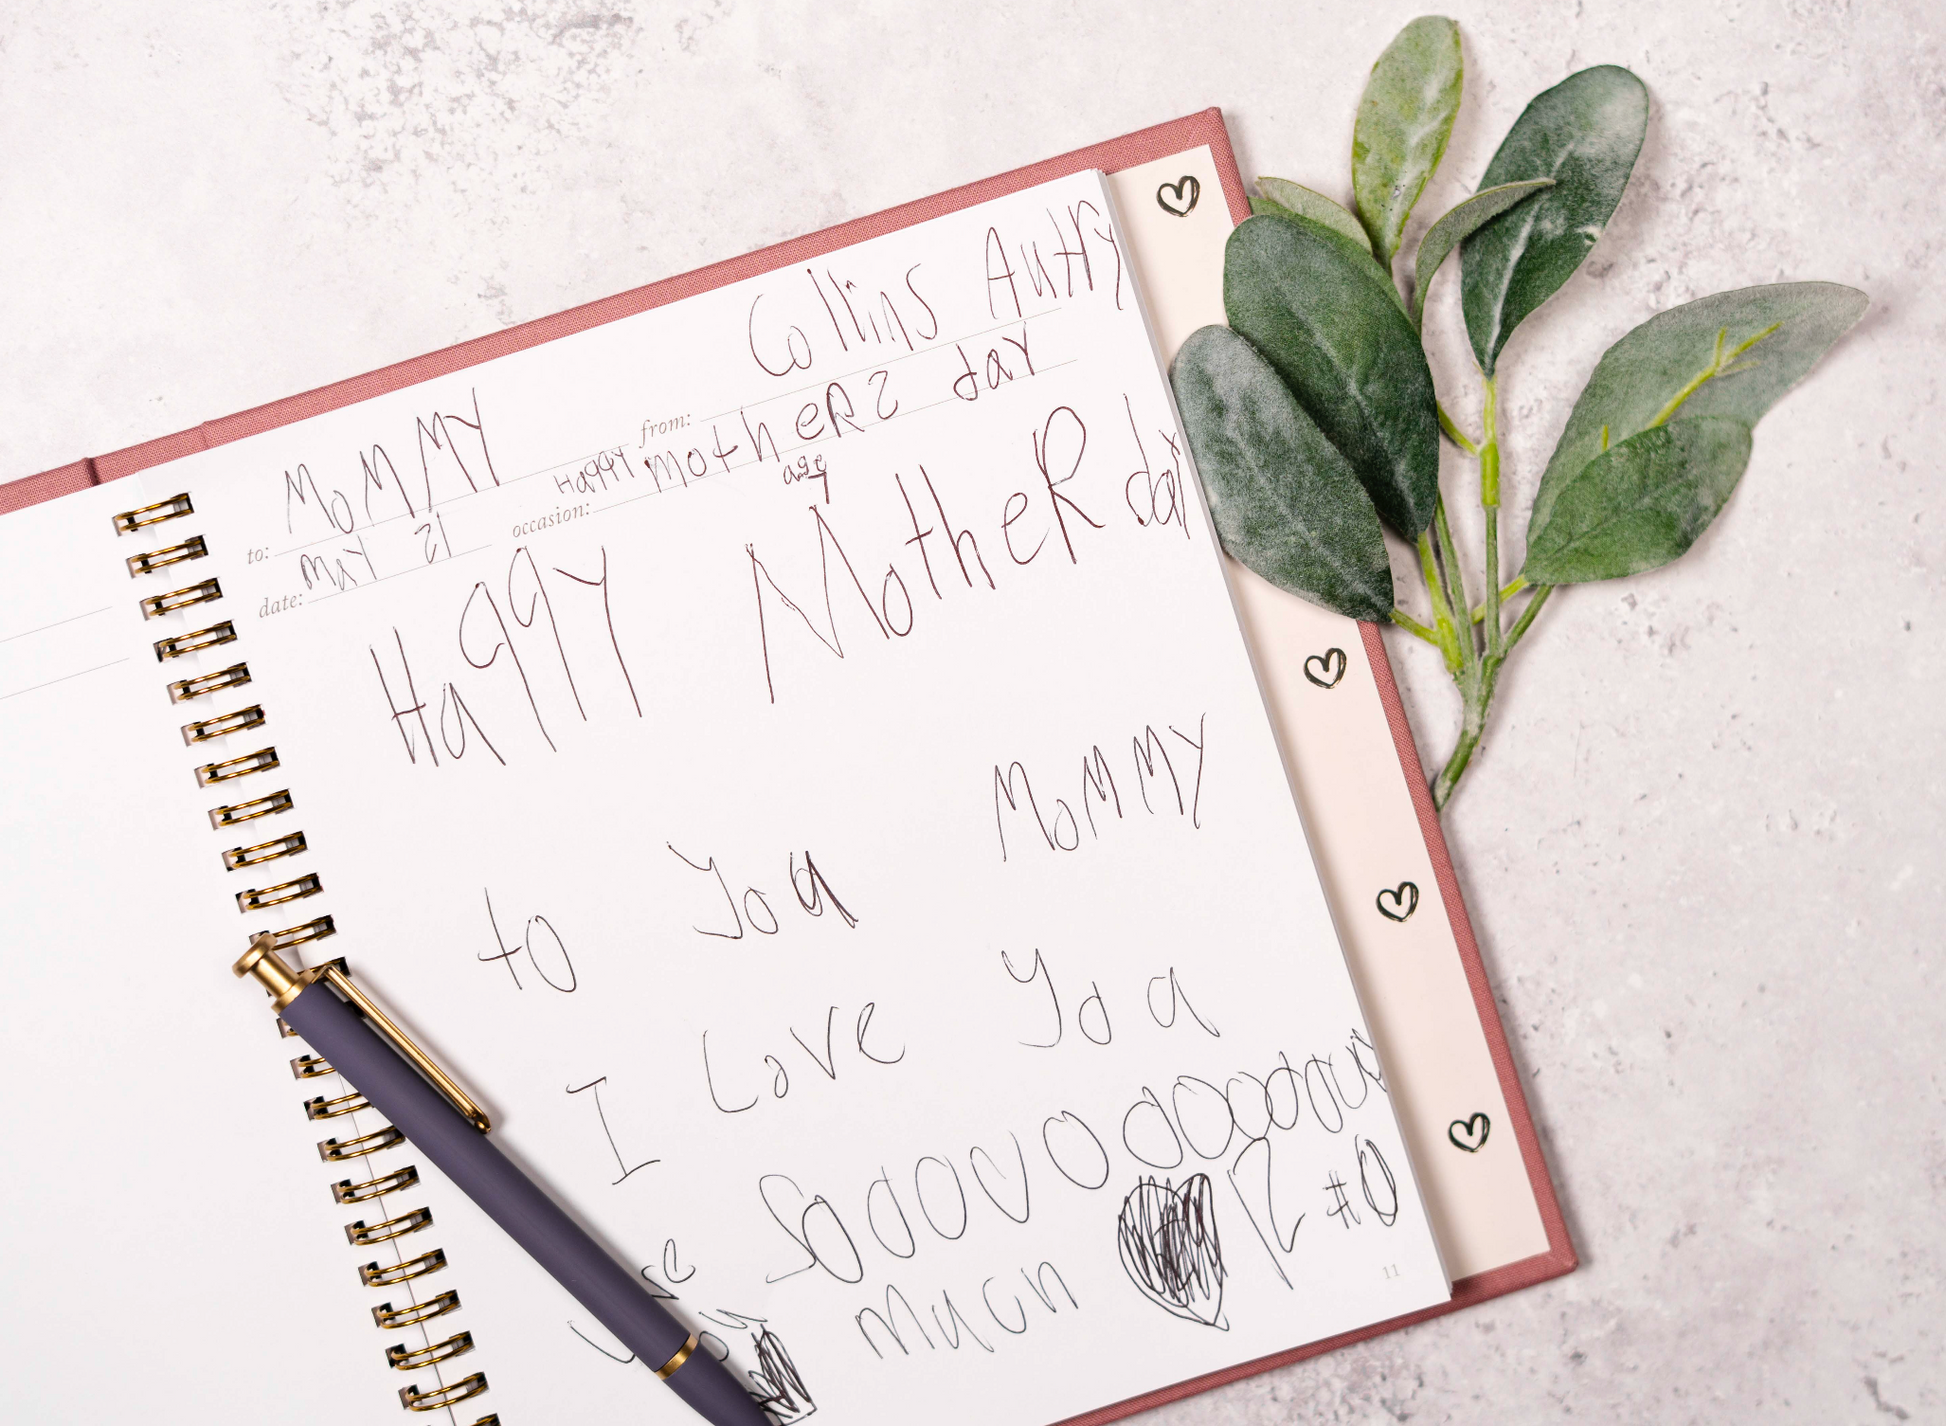 to: MoMMY from: Collins Autry
date: May 21 occasion: Haqqy motheRs day
age
Haqqy MotheR day
to You MoMMY
I Love You
Sooooooooooooo
much
11